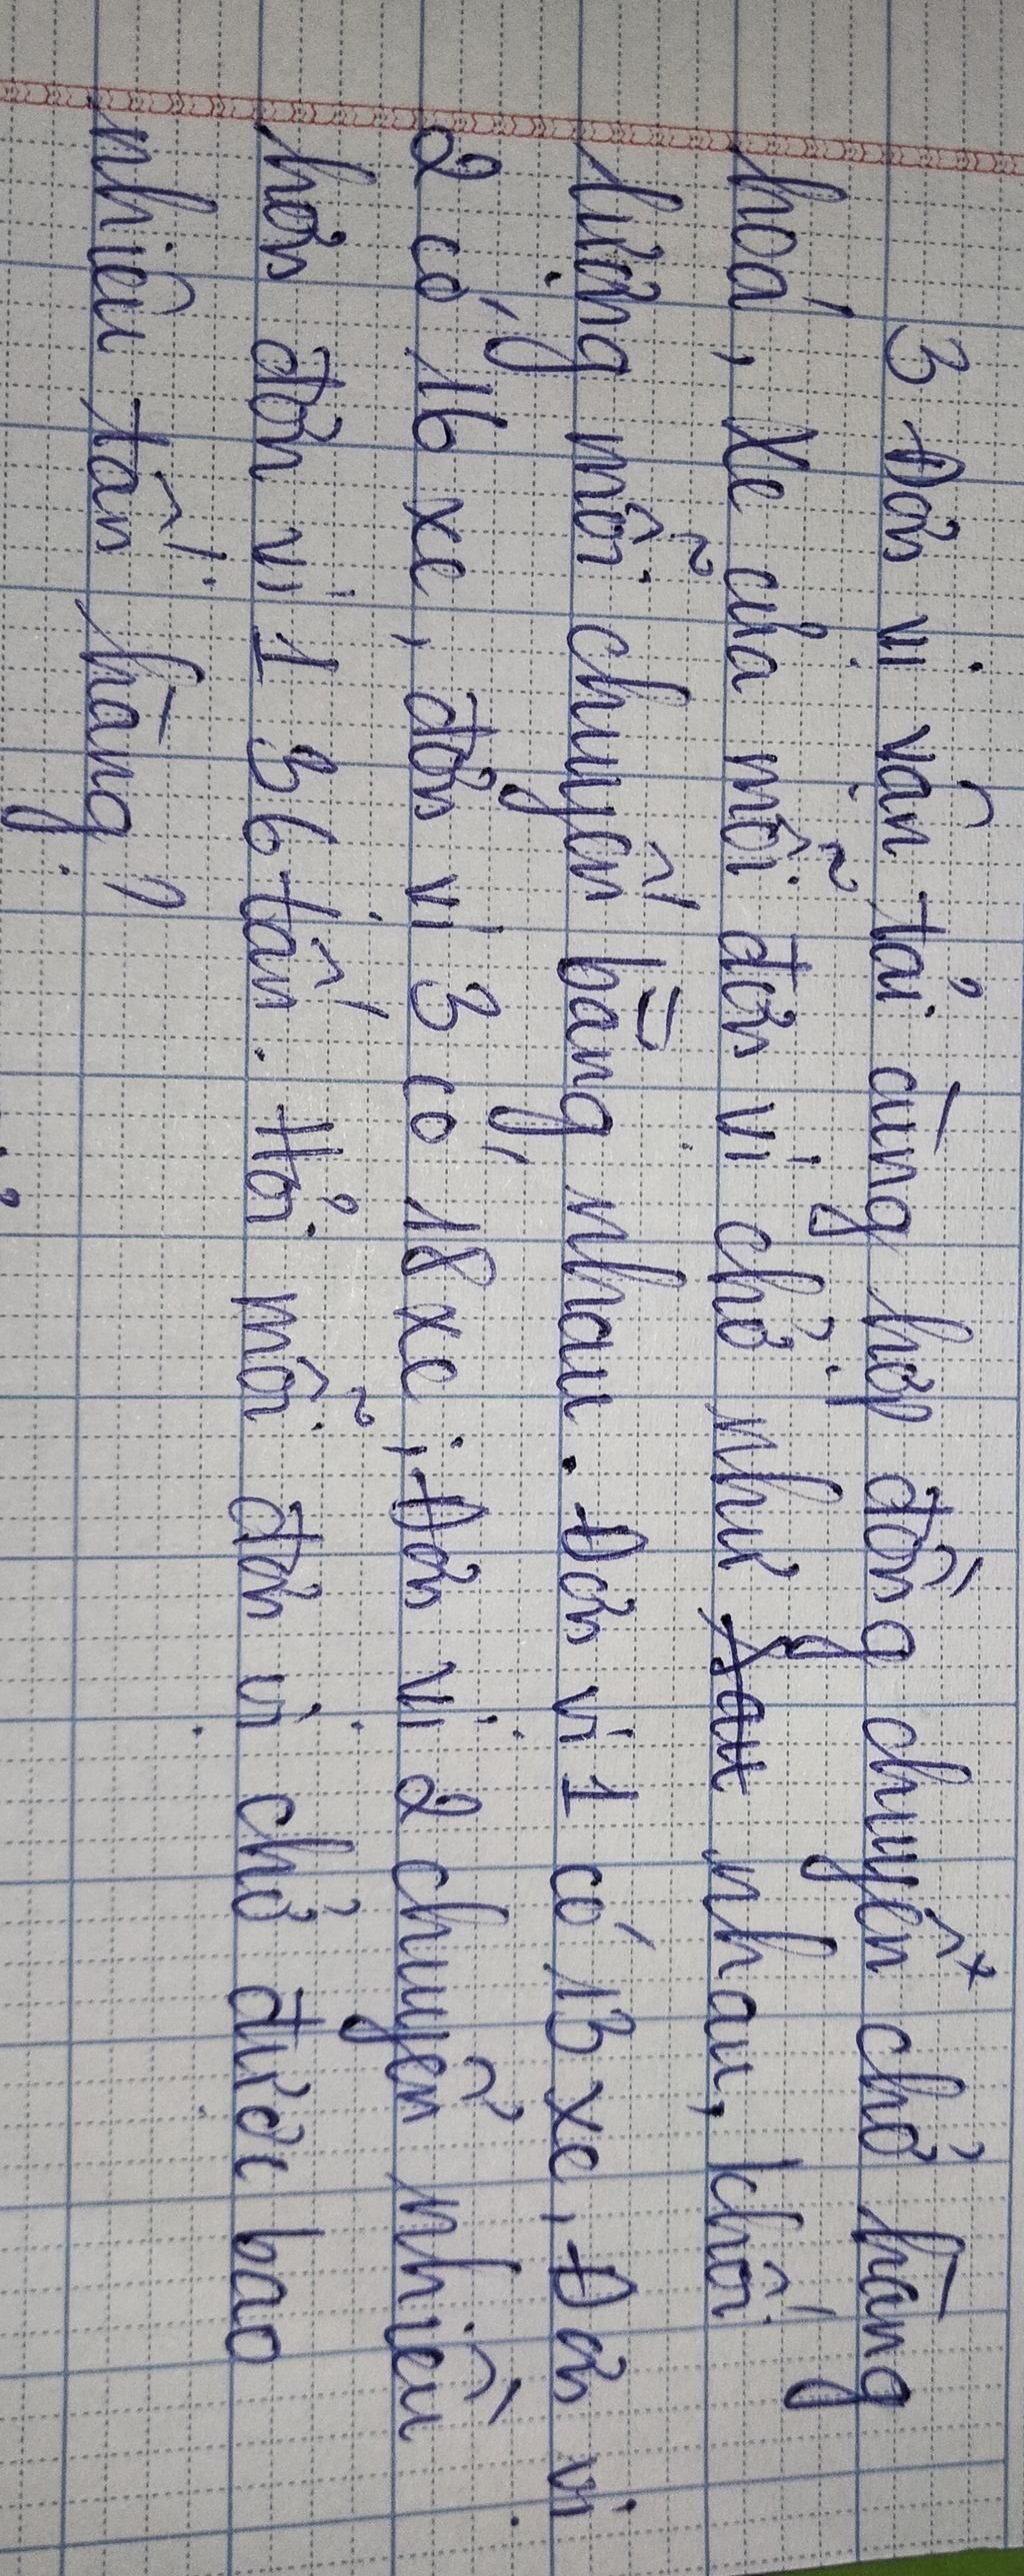 3 Đơn vị vận tải cùng hợp đồng chuyển chở hàng
hoá, Xe của mỗi đơn vị chở như nhau, khối
lượng mỗi chuyến bằng nhau. Đơn vị 1 có 13 xe, Đơn vị
2 có 16 xe, đơn vị 3 có 18 xe; Đơn vị 2 chuyển nhiều
hơn đơn vị 1 36 tấn. Hỏi mỗi đơn vị chở được bao
nhiêu tấn hàng?